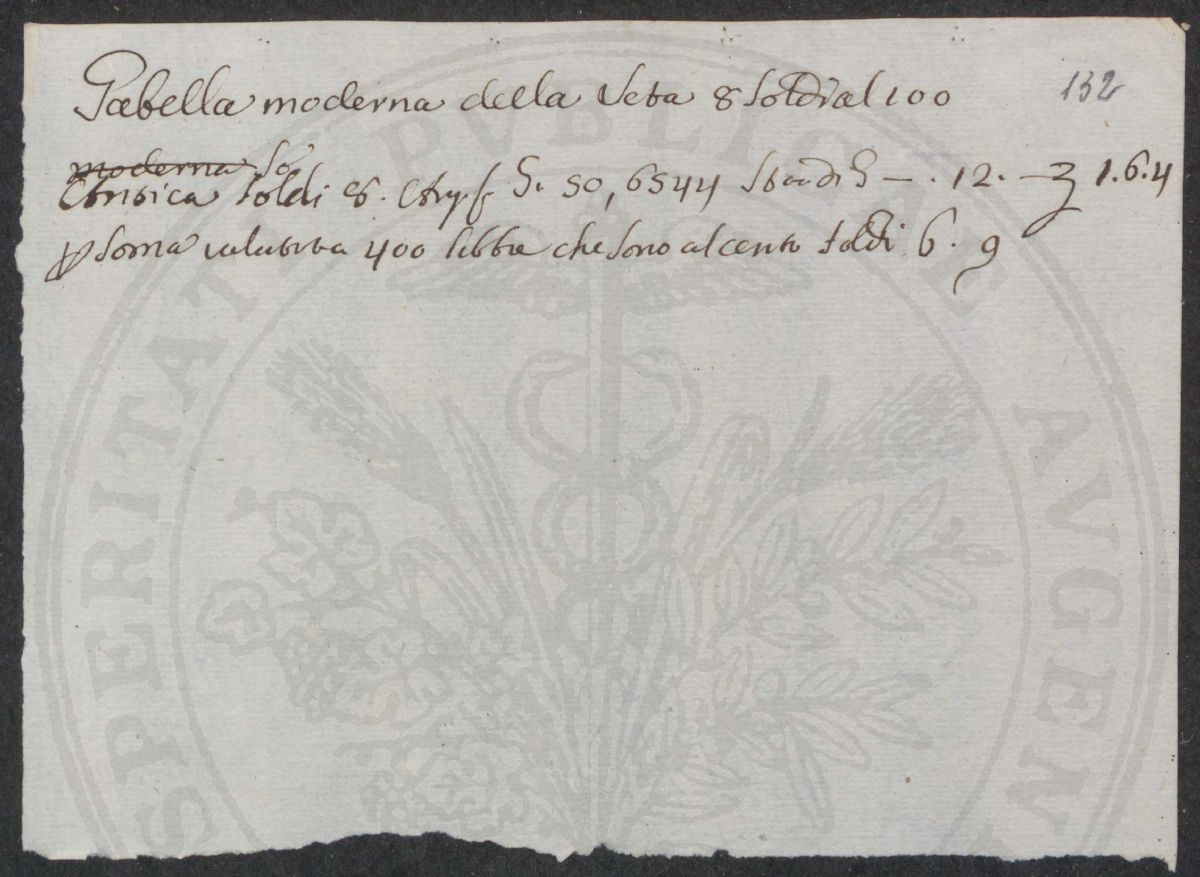 Gabella moderna della Seta 8 Soldi al 100
132
moderna So
Antica Soldi 8. 50, 6544 12. 1.6.4
soma valutata 400 libbre che sono al cento soldi 6. 9
PERITATI PVBLICAE AVGEN